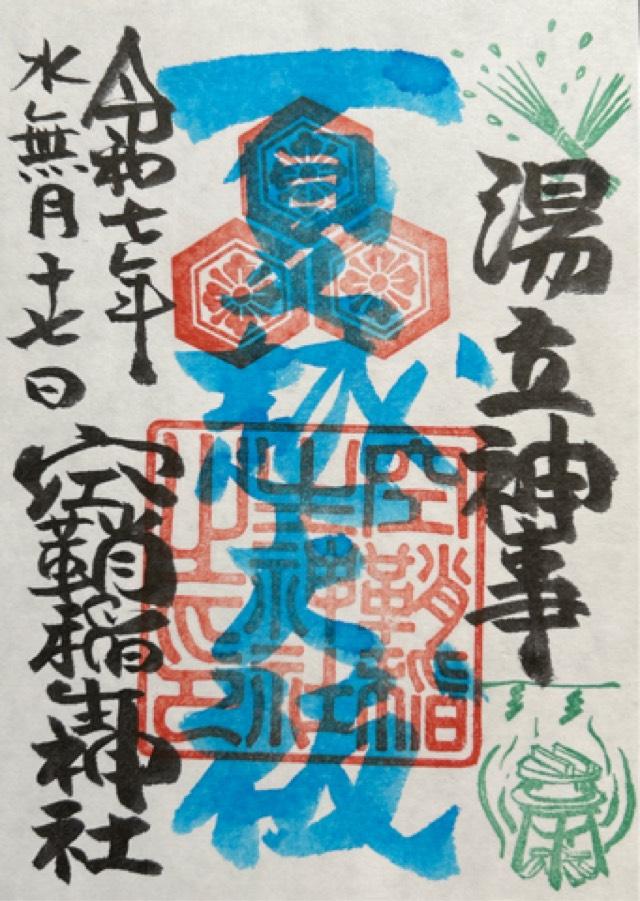 湯立神事
夏越大祓
空鞘稲
生神社
之印
令和七年
水無月十七日
空鞘稲生神社